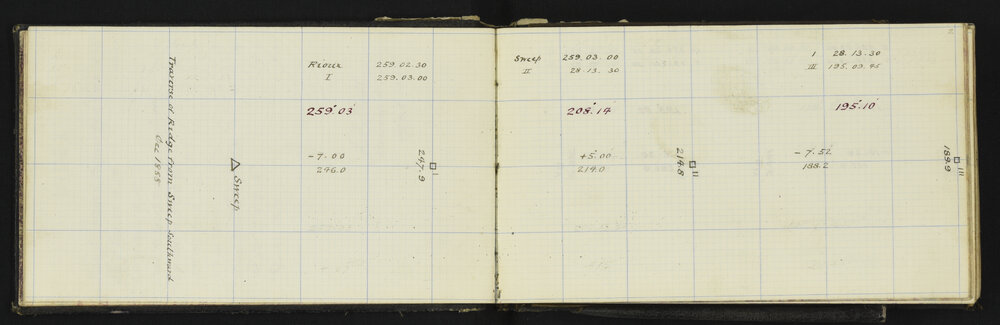 Traverse of Ridge from Sweep Southward
Dec 1888
△ Sweep
Rioux 259.02.30
I 259.03.00
259° 03'
-7.00
246.0
247.9
Sweep 259.03.00
II 28.13.30
208° 14'
+5.00
214.0
214.8
II
I 28.13.30
III 195.09.45
195.10
-7.52
188.2
189.9
III